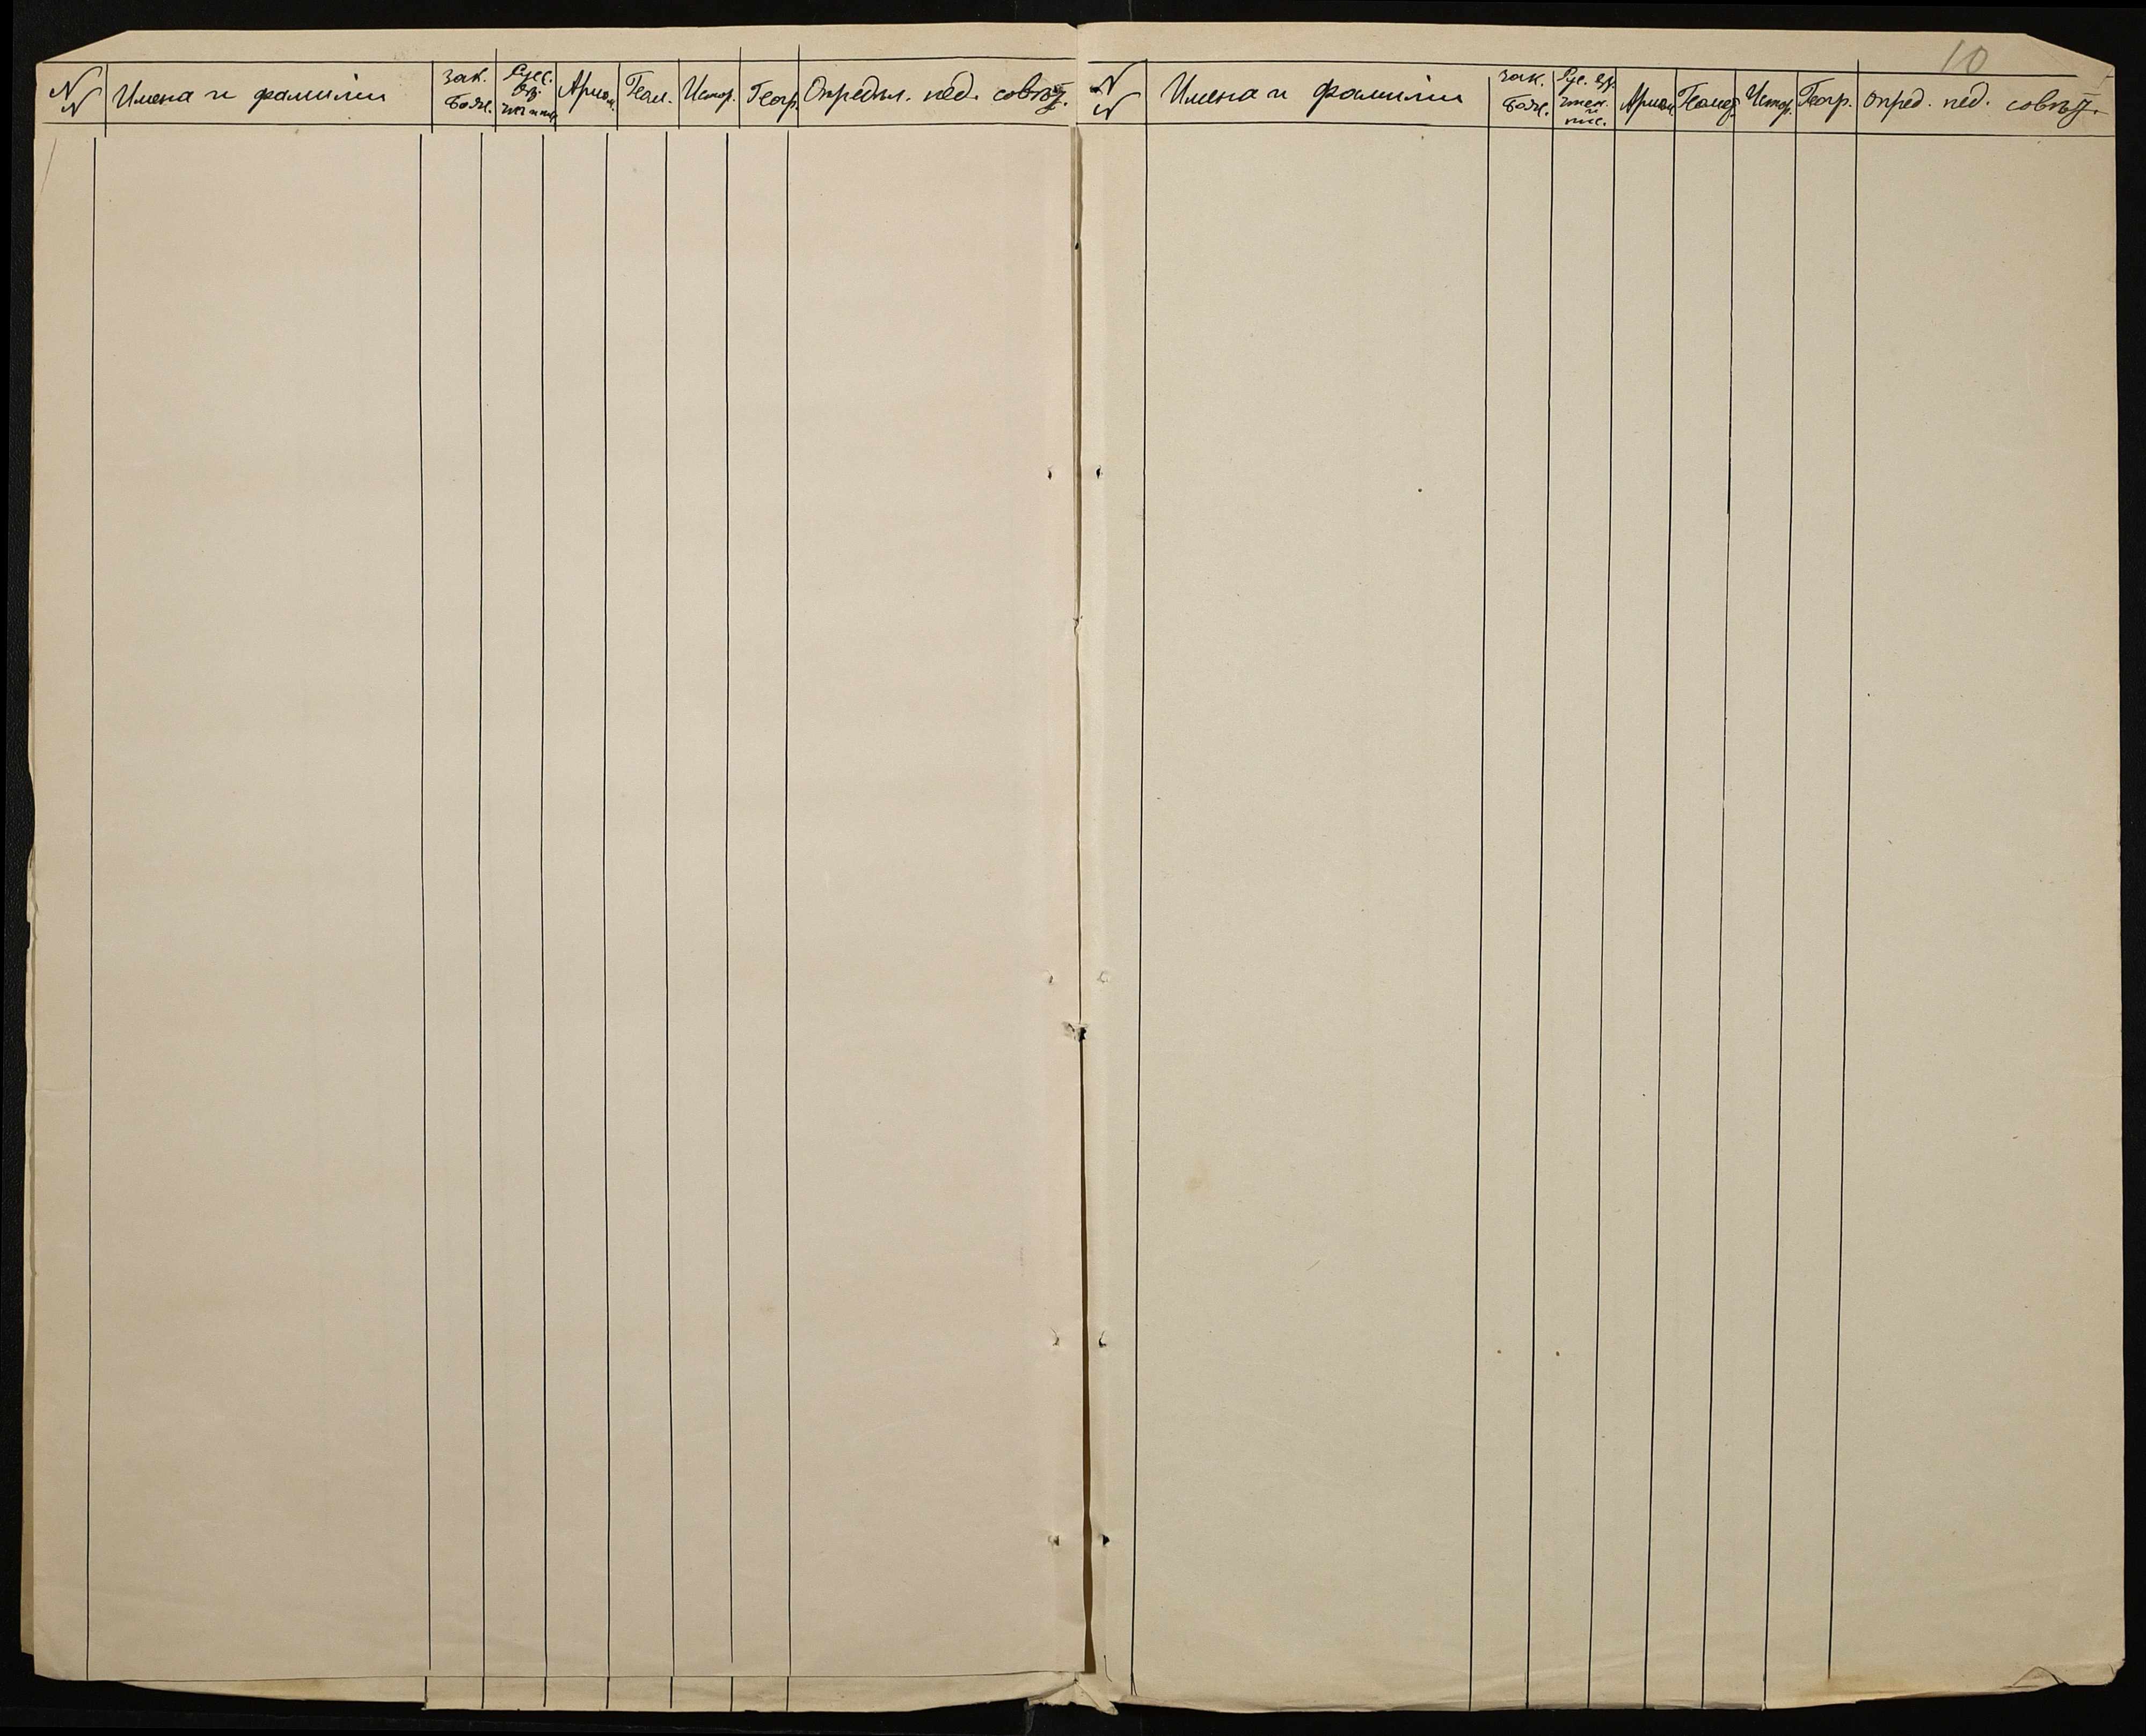 N N
Имена и фамилии
Зак. Бож.
Рус. яз. чт. и пис.
Арифм.
Геом.
Истор.
Геогр.
Опредѣл. пед. совѣт.
10
N N
Имена и фамилии
Зак. Бож.
Рус. яз. чтен. и пис.
Арифм.
Геомет.
Истор.
Геогр.
Опред. пед. совѣт.